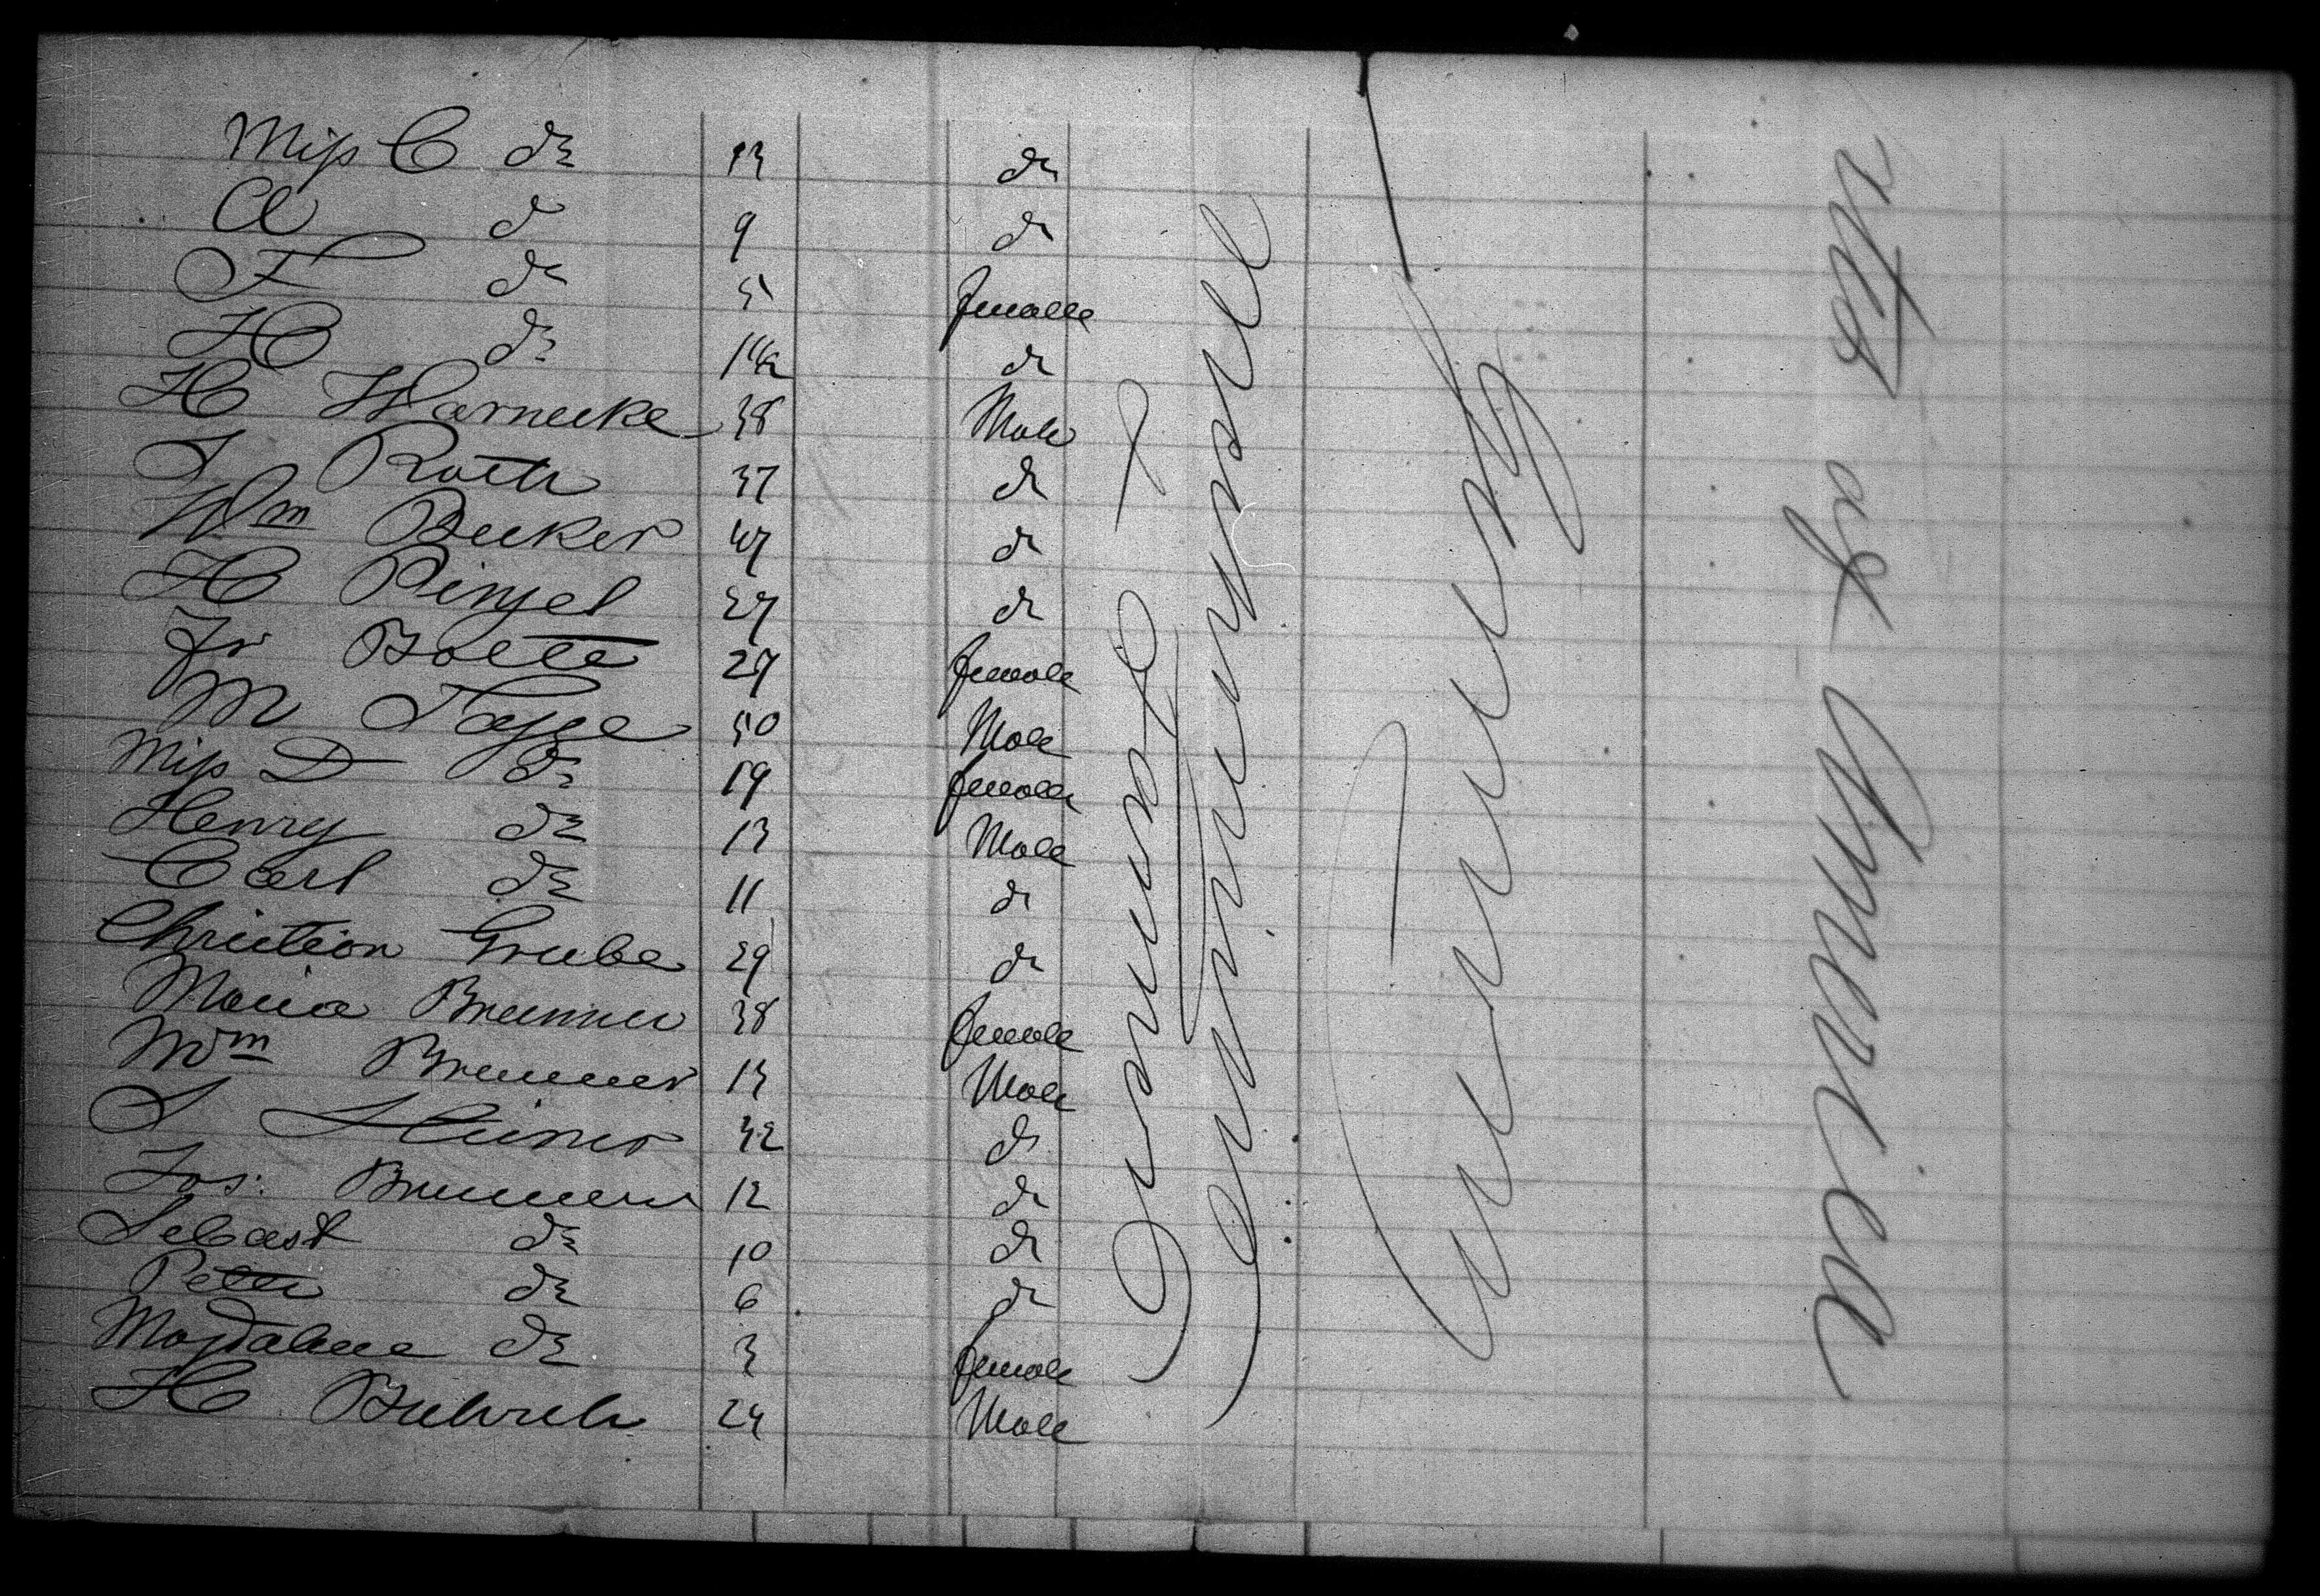 Miss C do 13 do
A do 9 do
F do 5 female
H do 1 1/2 do
H Warnecke 38 Male
J Roth 37 do
Wm Becker 47 do
H Pinzel 27 do
Fr Bolte 27 female
M 50 Male
Miss D do 19 female
Henry do 13 Male
Carl do 11 do
Christian Grube 29 do
Maria Brunner 38 female
Wm Brunner 13 Male
S 32 do
Jos. Brunner 12 do
Sebast do 10 do
Peter do 6 do
Magdalene do 3 female
H 24 Male
Germany
of America